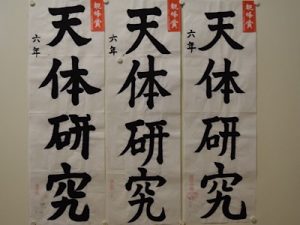 天体研究
六年
天体研究
六年
天体研究
六年